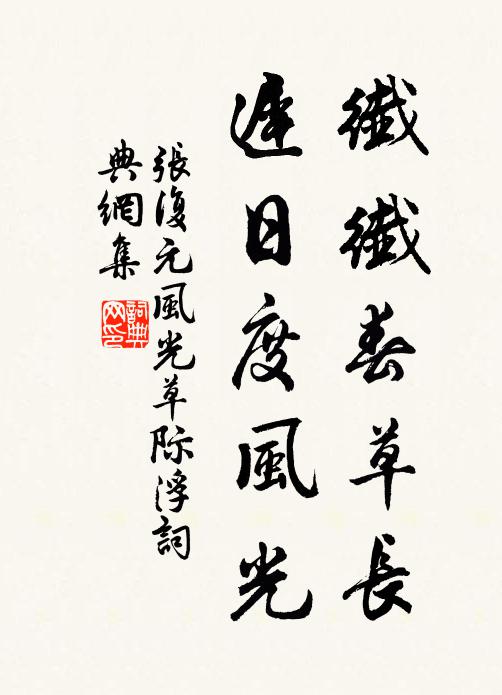 纖纖春草長
遲日度風光
張復元風光草际浮詞
典網集
詞典
网印